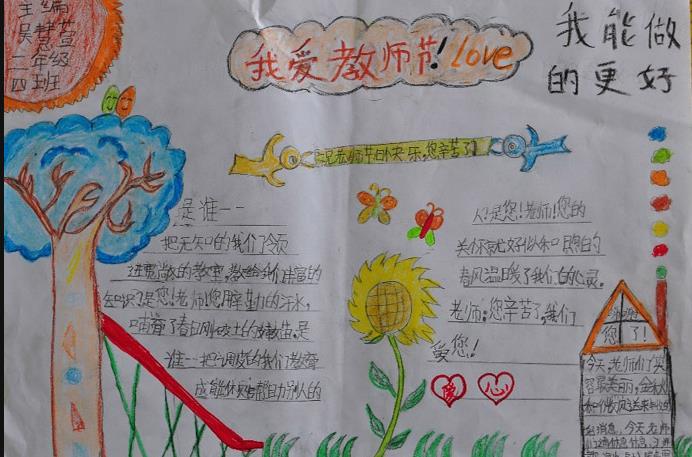 主编
吴梓萱
二年级
四班
我爱教师节!love
我能做
的更好
祝老师节日快乐,您辛苦了!
是谁——
把无知的我们领
进宽敞的教室,教给我们丰富的
知识?是您!老师!您用辛勤的汗水,
哺育了春日刚破土的嫩苗。是
谁——把调皮的我们教育
成能体贴帮助别人的
人?是您!老师!您的
关怀就好似和煦的
春风温暖了我们的心灵。
老师,您辛苦了,我们
爱您!
爱 心
您
了!
今天,老师们笑
容最美丽,金秋
送来
消息,今天老师